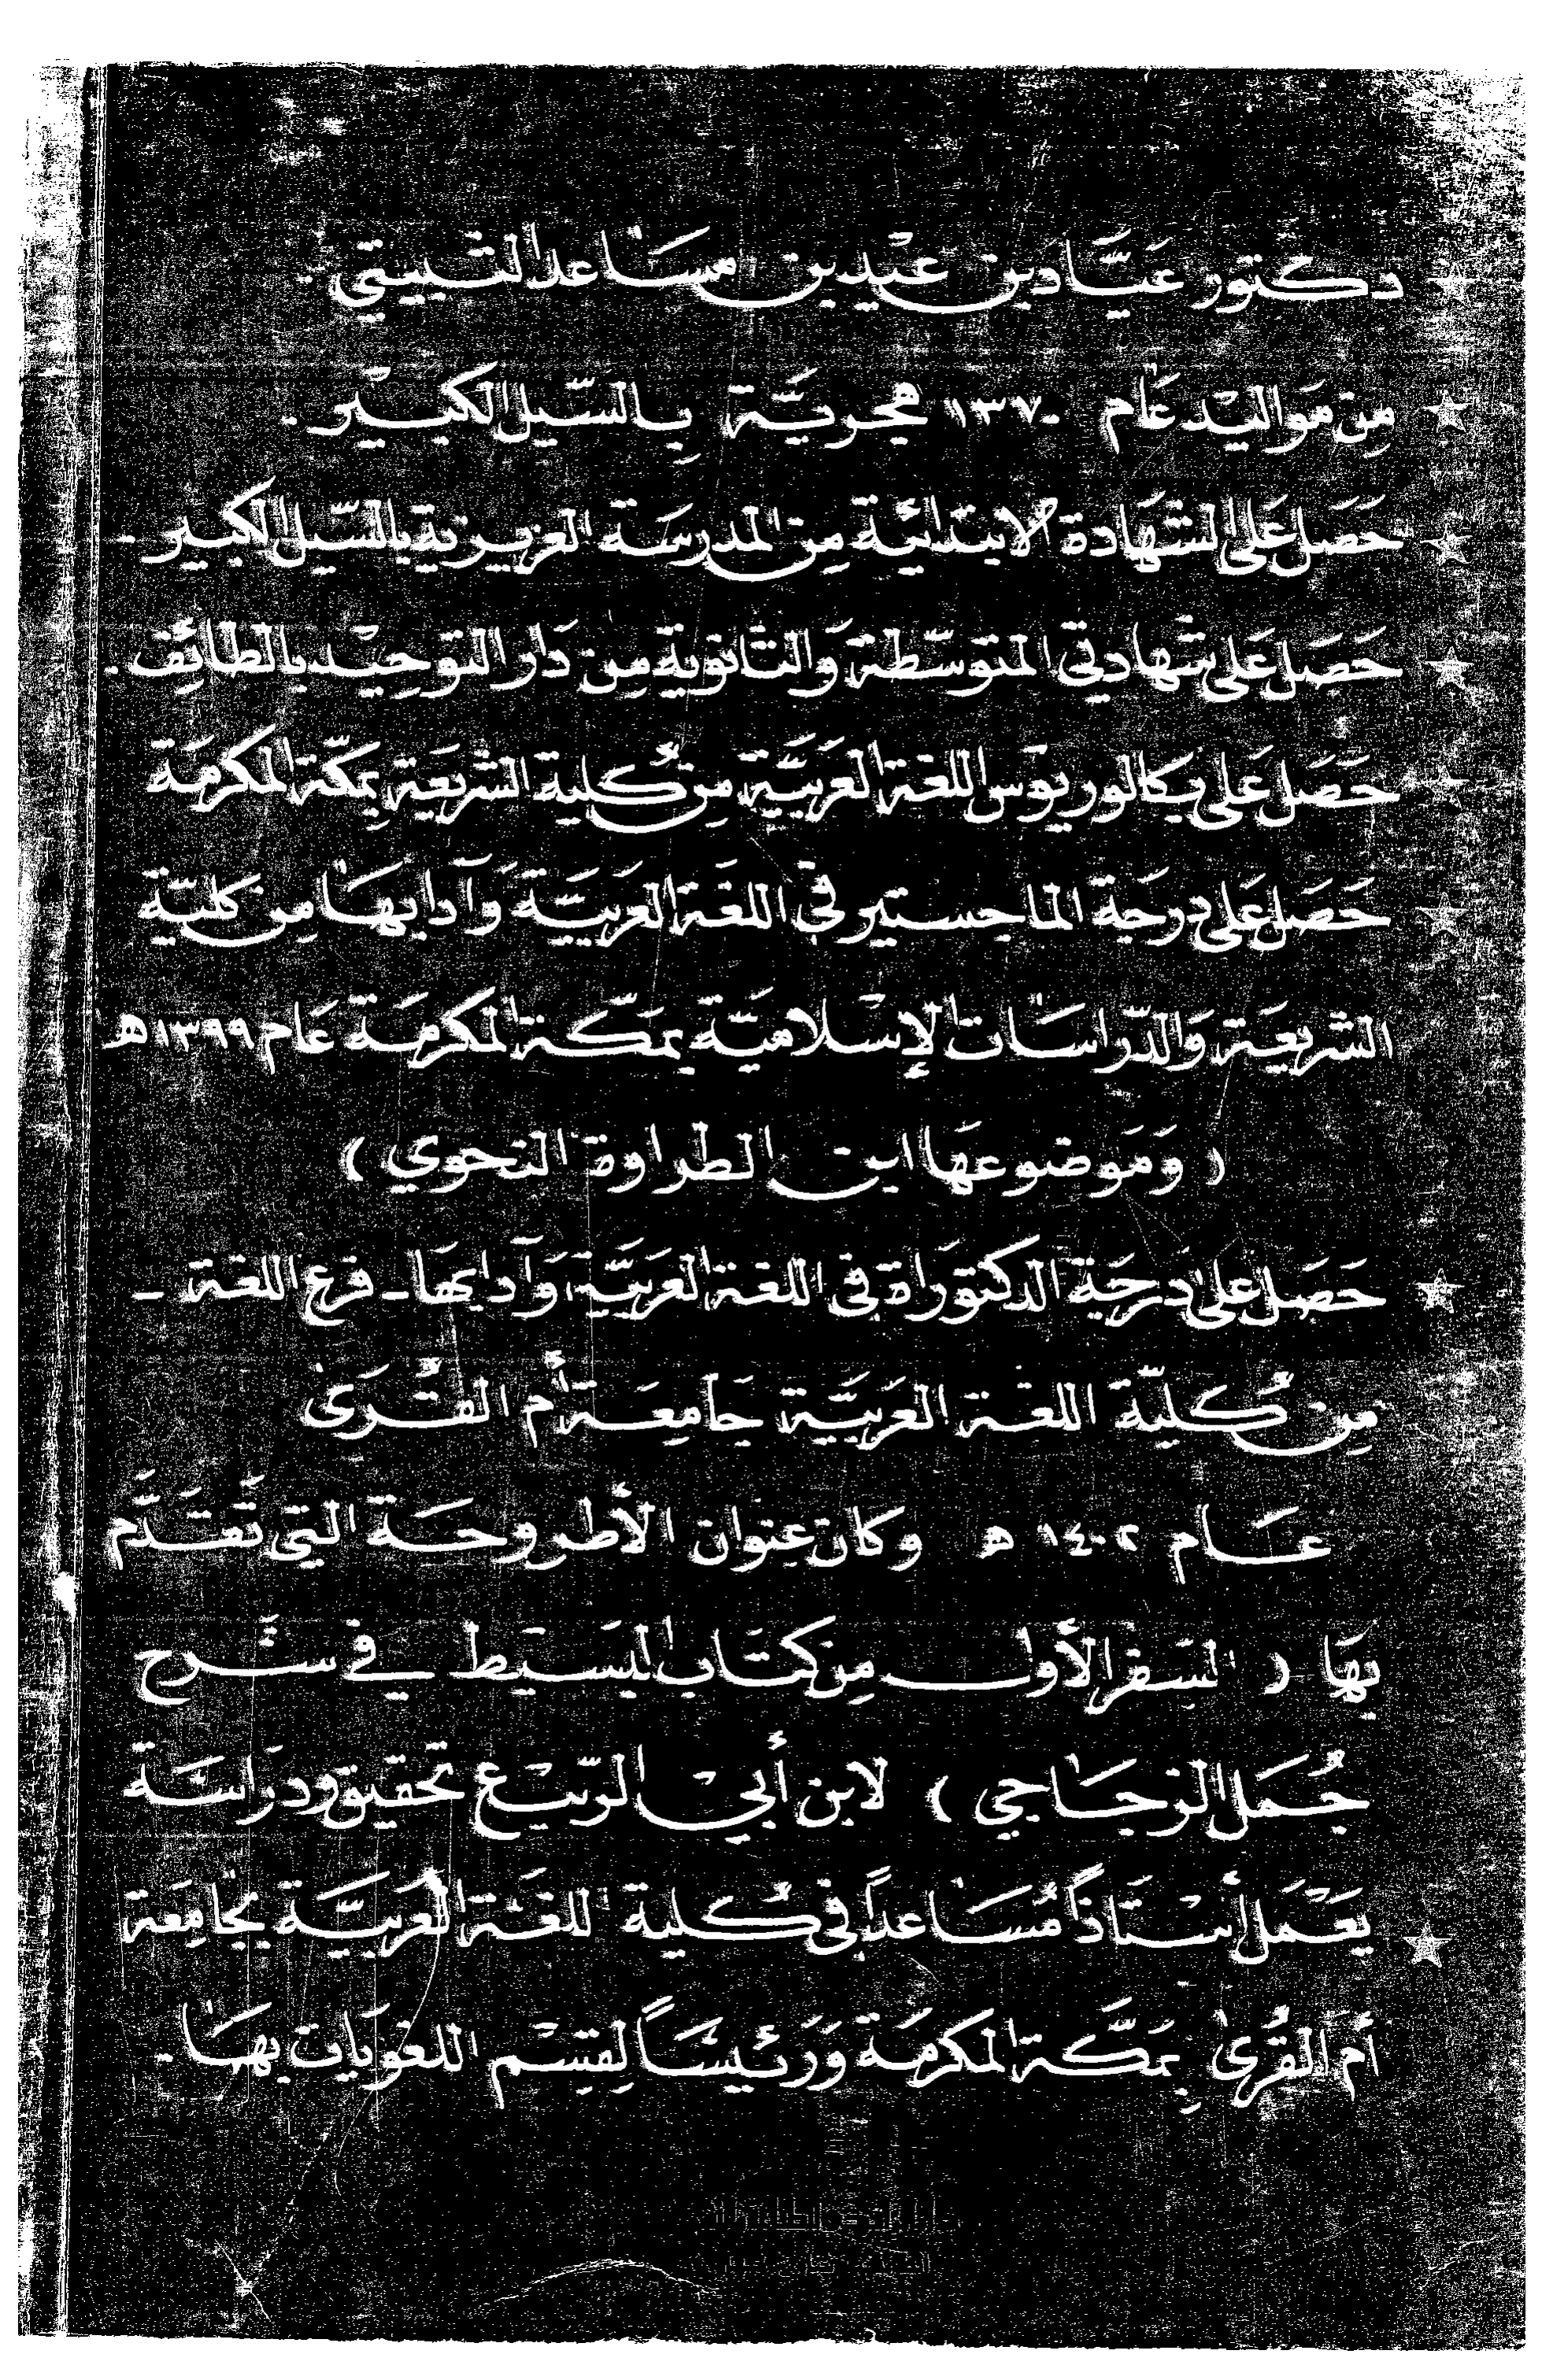 ★ دكتور عيَّاد بن عيْد بن مسَاعد الثبيتي .
★ مِن مَواليْد عَام ١٣٧٠ هجريَّة بِالسَّيل الكبيْر .
★ حَصَل عَلى الشهَادة الابتدائيَّة مِن المدرسَة العزيزية بالسَّيل الكبير .
★ حَصَل عَلى شهادتي المتوسّطة وَالثانوية مِن دَار التوحيْد بالطائِف .
★ حَصَل عَلى بكالوريوس اللغة العَربيَّة مِن كُلية الشريعَة بِمكّة المكرمَة
★ حَصَل عَلى درجَة الماجستير في اللغَة العَربيَّة وَآدابهَا مِن كليّة
الشريعَة وَالدّراسَات الإسْلاميَّة بمكّة المكرمَة عَام ١٣٩٩ هـ
( وَمَوضوعهَا ابن الطراوة النحوي )
★ حَصَل عَلى دَرجَة الدكتورَاة في اللغة العَربيَّة وَآدابهَا - فرع اللغة -
مِن كُليّة اللغة العَربيَّة جَامِعَة أم القُرَى
عَام ١٤٠٢ هـ وكان عنوان الأطروحَة التي تَقَدَّم
بهَا ( السفر الأول مِن كتَاب البسيَط في شَرح
جُمَل الزجَاجي ) لابن أبي الربيْع تحقيق ودرَاسَة
★ يَعْمَل أسْتَاذاً مُسَاعداً في كُلية اللغَة العَربيَّة بجَامِعَة
أم القُرى بِمَكَّة المكرمَة وَرَئيسَاً لِقِسْم اللغويَات بهَا .